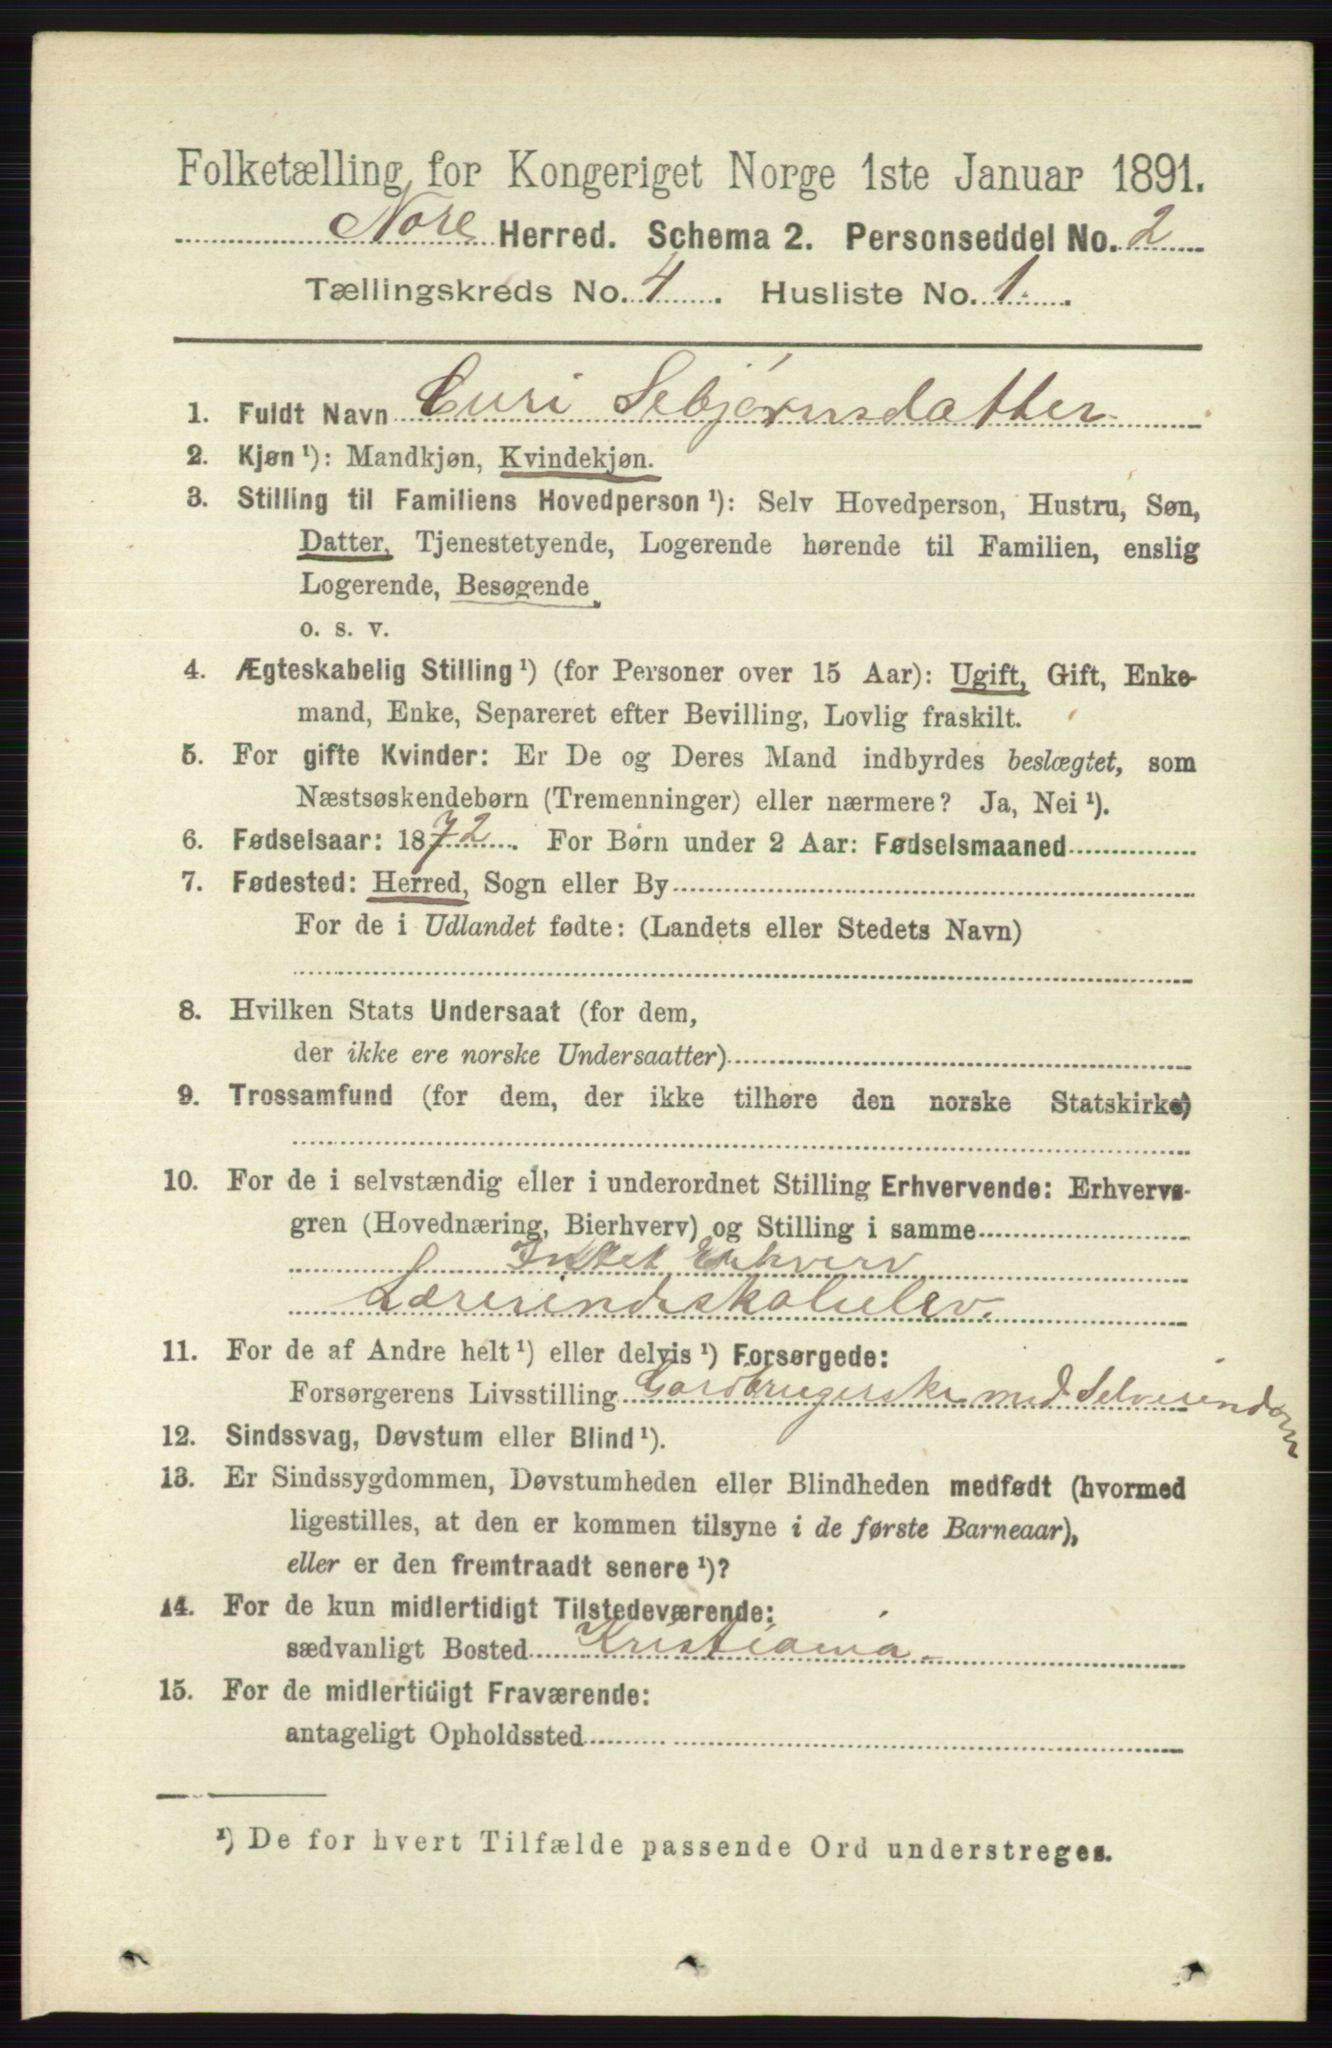 Folketælling for Kongeriget Norge 1ste Januar 1891.
Nore Herred. Schema 2. Personseddel No. 2
Tællingskreds No. 4. Husliste No. 1.
1. Fuldt Navn Guri Sebjørnsdatter
2. Kjøn¹): Mandkjøn, Kvindekjøn.
3. Stilling til Familiens Hovedperson¹): Selv Hovedperson, Hustru, Søn,
Datter, Tjenestetyende, Logerende hørende til Familien, enslig
Logerende, Besøgende,
o. s. v.
4. Ægteskabelig Stilling¹) (for Personer over 15 Aar): Ugift, Gift, Enke-
mand, Enke, Separeret efter Bevilling, Lovlig fraskilt.
5. For gifte Kvinder: Er De og Deres Mand indbyrdes beslægtet, som
Næstsøskendebørn (Tremenninger) eller nærmere? Ja, Nei¹).
6. Fødselsaar: 1872. For Børn under 2 Aar: Fødselsmaaned
7. Fødested: Herred, Sogn eller By
For de i Udlandet fødte: (Landets eller Stedets Navn)
8. Hvilken Stats Undersaat (for dem,
der ikke ere norske Undersaatter)
9. Trossamfund (for dem, der ikke tilhøre den norske Statskirke)
10. For de i selvstændig eller i underordnet Stilling Erhvervende: Erhvervs-
gren (Hovednæring, Bierhverv) og Stilling i samme
Intet Erhverv
Lærerindeskoleelev.
11. For de af Andre helt¹) eller delvis¹) Forsørgede:
Forsørgerens Livsstilling Gardbrugerske med Selveiendom
12. Sindssvag, Døvstum eller Blind¹).
13. Er Sindssygdommen, Døvstumheden eller Blindheden medfødt (hvormed
ligestilles, at den er kommen tilsyne i de første Barneaar),
eller er den fremtraadt senere¹)?
14. For de kun midlertidigt Tilstedeværende:
sædvanligt Bosted Kristiania.
15. For de midlertidigt Fraværende:
antageligt Opholdssted
¹) De for hvert Tilfælde passende Ord understreges.